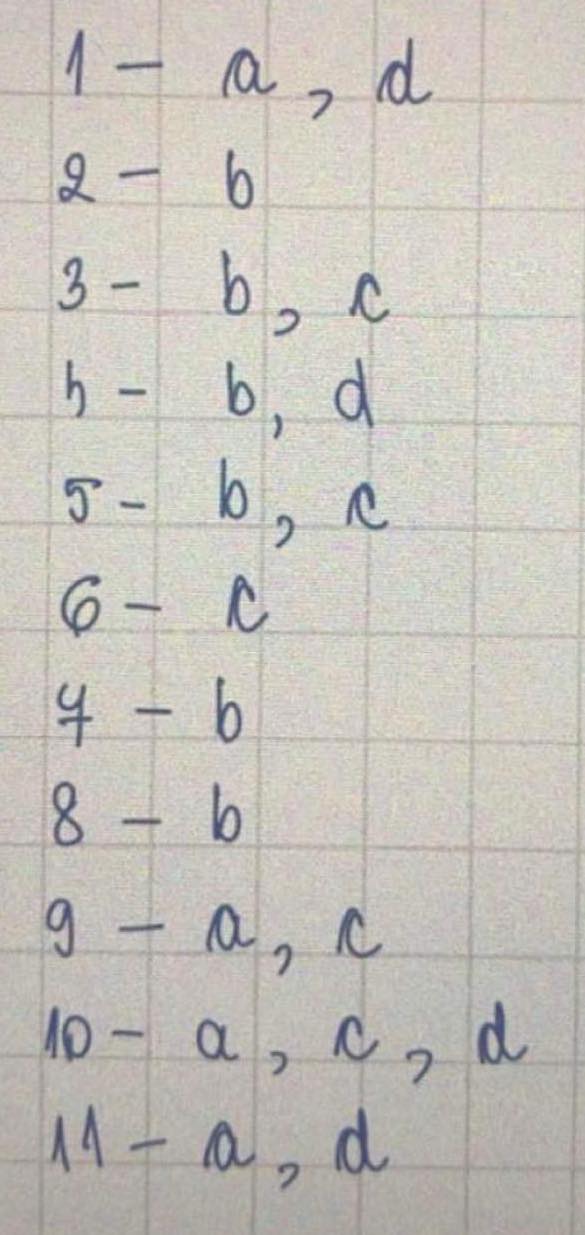 1 - a, d
2 - b
3 - b, c
4 - b, d
5 - b, c
6 - c
7 - b
8 - b
9 - a, c
10 - a, c, d
11 - a, d